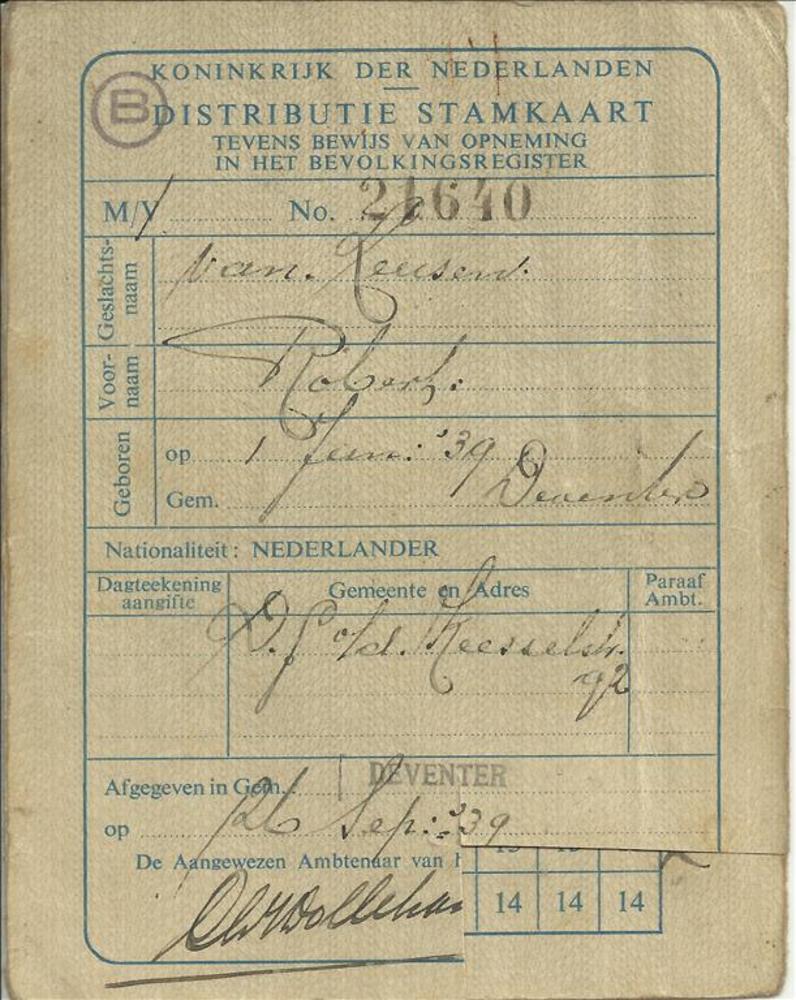 KONINKRIJK DER NEDERLANDEN
B
DISTRIBUTIE STAMKAART
TEVENS BEWIJS VAN OPNEMING
IN HET BEVOLKINGSREGISTER
M/V No. 21640
Geslachts-
naam
van
Voor-
naam
Robert
Geboren
op 1 Juni '39
Gem. Deventer
Nationaliteit: NEDERLANDER
Dagteekening
aangifte
Gemeente en Adres
Paraaf
Ambt.
92
Afgegeven in Gem.: DEVENTER
op 26 Sep: '39
De Aangewezen Ambtenaar van
14 14 14